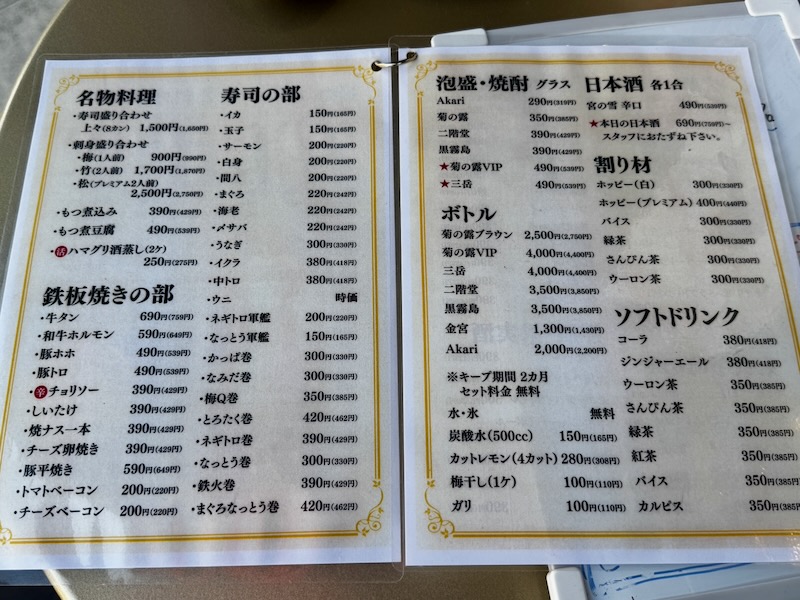 名物料理
・寿司盛り合わせ
上々(8カン) 1,500円(1,650円)
・刺身盛り合わせ
・梅(1人前) 900円(990円)
・竹(2人前) 1,700円(1,870円)
・松(プレミアム2人前)
2,500円(2,750円)
・もつ煮込み 390円(429円)
・もつ煮豆腐 490円(539円)
・活ハマグリ酒蒸し(2ケ)
250円(275円)
鉄板焼きの部
・牛タン 690円(759円)
・和牛ホルモン 590円(649円)
・豚ホホ 490円(539円)
・豚トロ 490円(539円)
・辛チョリソー 390円(429円)
・しいたけ 390円(429円)
・焼ナス一本 390円(429円)
・チーズ卵焼き 390円(429円)
・豚平焼き 590円(649円)
・トマトベーコン 200円(220円)
・チーズベーコン 200円(220円)
寿司の部
・イカ 150円(165円)
・玉子 150円(165円)
・サーモン 200円(220円)
・白身 200円(220円)
・間八 200円(220円)
・まぐろ 220円(242円)
・海老 220円(242円)
・〆サバ 220円(242円)
・うなぎ 300円(330円)
・イクラ 380円(418円)
・中トロ 380円(418円)
・ウニ 時価
・ネギトロ軍艦 200円(220円)
・なっとう軍艦 150円(165円)
・かっぱ巻 300円(330円)
・なみだ巻 300円(330円)
・梅Q巻 350円(385円)
・とろたく巻 420円(462円)
・ネギトロ巻 390円(429円)
・なっとう巻 300円(330円)
・鉄火巻 390円(429円)
・まぐろなっとう巻 420円(462円)
泡盛・焼酎 グラス
Akari 290円(319円)
菊の露 350円(385円)
二階堂 390円(429円)
黒霧島 390円(429円)
★菊の露VIP 490円(539円)
★三岳 490円(539円)
ボトル
菊の露ブラウン 2,500円(2,750円)
菊の露VIP 4,000円(4,400円)
三岳 4,000円(4,400円)
二階堂 3,500円(3,850円)
黒霧島 3,500円(3,850円)
金宮 1,300円(1,430円)
Akari 2,000円(2,200円)
※キープ期間 2カ月
セット料金 無料
水・氷 無料
炭酸水(500cc) 150円(165円)
カットレモン(4カット) 280円(308円)
梅干し(1ケ) 100円(110円)
ガリ 100円(110円)
日本酒 各1合
宮の雪 辛口 490円(539円)
★本日の日本酒 690円(759円)〜
スタッフにおたずね下さい。
割り材
ホッピー(白) 300円(330円)
ホッピー(プレミアム) 400円(440円)
バイス 300円(330円)
緑茶 300円(330円)
さんぴん茶 300円(330円)
ウーロン茶 300円(330円)
ソフトドリンク
コーラ 380円(418円)
ジンジャーエール 380円(418円)
ウーロン茶 350円(385円)
さんぴん茶 350円(385円)
緑茶 350円(385円)
紅茶 350円(385円)
バイス 350円(385円)
カルピス 350円(385